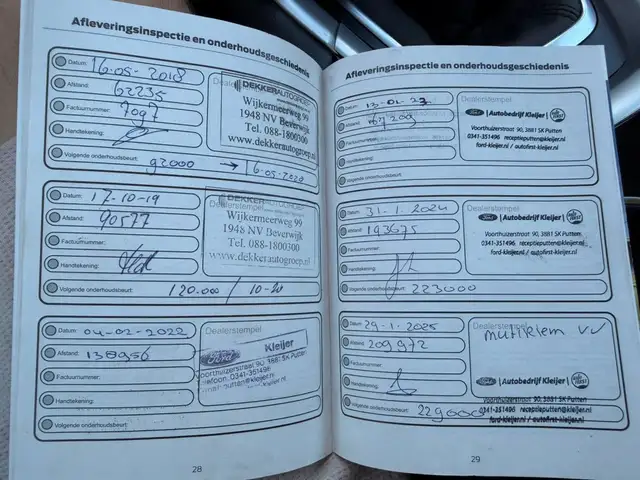 Afleveringsinspectie en onderhoudsgeschiedenis
Datum: 16-05-2018
Afstand: 62235
Factuurnummer: 7097
Handtekening:
Volgende onderhoudsbeurt: 92000 → 16-05-2020
DEKKERAUTOGROEP
Wijkermeerweg 99
1948 NV Beverwijk
Tel. 088-1800300
www.dekkerautogroep.nl
Datum: 17-10-19
Afstand: 90577
Factuurnummer:
Handtekening:
Volgende onderhoudsbeurt: 120.000 / 10-20
DEKKERAUTOGROEP
Dealerstempel
Wijkermeerweg 99
1948 NV Beverwijk
Tel. 088-1800300
www.dekkerautogroep.nl
Datum: 04-02-2022
Afstand: 138956
Factuurnummer:
Handtekening:
Volgende onderhoudsbeurt:
Dealerstempel
Ford Kleijer
Voorthuizerstraat 90, 3881 SK Putten
Telefoon: 0341-351496
28
Afleveringsinspectie en onderhoudsgeschiedenis
Datum: 13-01-23
Afstand:
Factuurnummer:
Handtekening:
Volgende onderhoudsbeurt:
Dealerstempel
Ford | Autobedrijf Kleijer |
Voorthuizerstraat 90, 3881 SK Putten
0341-351496 receptieputten@kleijer.nl
ford-kleijer.nl / autofirst-kleijer.nl
Datum: 31-1-2024
Afstand: 193675
Factuurnummer:
Handtekening:
Volgende onderhoudsbeurt: 223000
Dealerstempel
Ford | Autobedrijf Kleijer |
Voorthuizerstraat 90, 3881 SK Putten
0341-351496 receptieputten@kleijer.nl
ford-kleijer.nl / autofirst-kleijer.nl
Datum: 29-1-2025
Afstand: 209972
Factuurnummer:
Handtekening:
Volgende onderhoudsbeurt: 229000
Dealerstempel
multiklem VV
Ford | Autobedrijf Kleijer |
Voorthuizerstraat 90, 3881 SK Putten
0341-351496 receptieputten@kleijer.nl
ford-kleijer.nl / autofirst-kleijer.nl
29